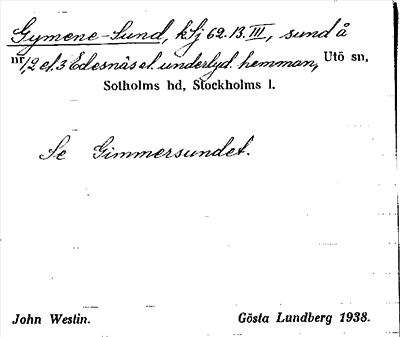 Gymene-Sund, klj 62.13.III, sund å
nr 1,2 el. 3 Edesnäs el. underlyd. hemman, Utö sn,
Sotholms hd, Stockholms l.
Se Gimmersundet.
John Westin. Gösta Lundberg 1938.